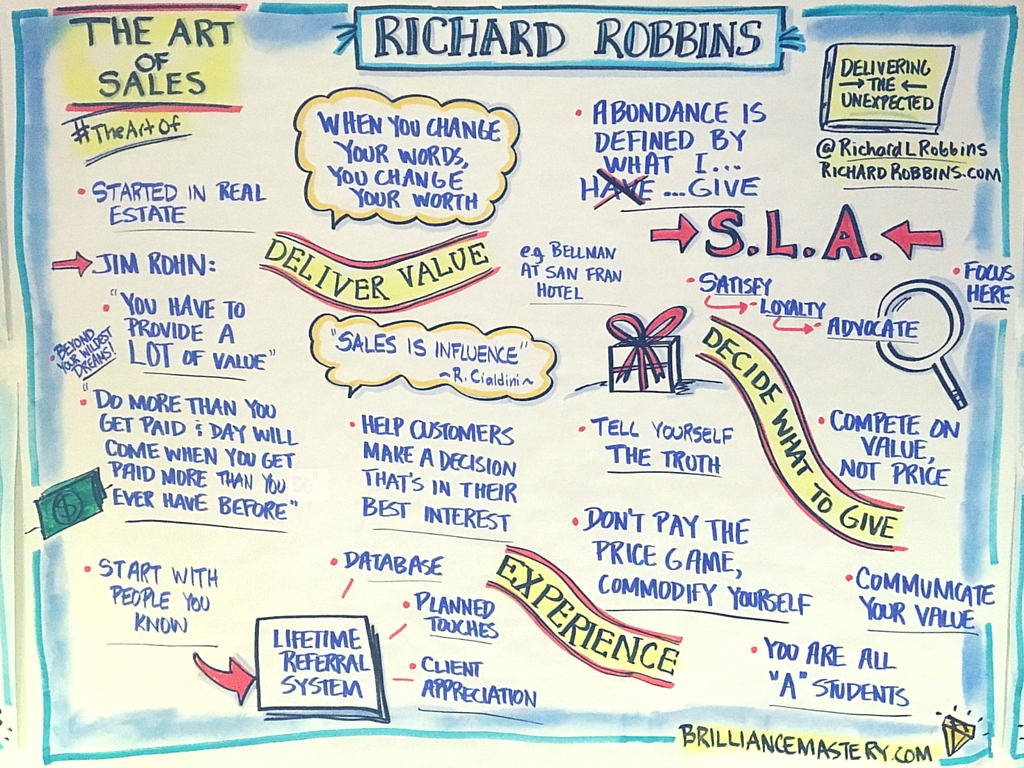 THE ART
OF
SALES
#TheArtOf
RICHARD ROBBINS
DELIVERING
THE
UNEXPECTED
@RichardLRobbins
RICHARDROBBINS.COM
• STARTED IN REAL
ESTATE
JIM ROHN:
• "YOU HAVE TO
PROVIDE A
LOT OF VALUE"
• BEYOND
YOUR WILDEST
DREAMS!
• "DO MORE THAN YOU
GET PAID & DAY WILL
COME WHEN YOU GET
PAID MORE THAN YOU
EVER HAVE BEFORE"
$
• START WITH
PEOPLE YOU
KNOW
WHEN YOU CHANGE
YOUR WORDS,
YOU CHANGE
YOUR WORTH
DELIVER VALUE
"SALES IS INFLUENCE"
~R. Cialdini~
• HELP CUSTOMERS
MAKE A DECISION
THAT'S IN THEIR
BEST INTEREST
• DATABASE
• PLANNED
TOUCHES
• CLIENT
APPRECIATION
LIFETIME
REFERRAL
SYSTEM
EXPERIENCE
• ABONDANCE IS
DEFINED BY
WHAT I...
HAVE ...GIVE
e.g. BELLMAN
AT SAN FRAN
HOTEL
S.L.A.
• SATISFY
• LOYALTY
• ADVOCATE
• FOCUS
HERE
DECIDE WHAT TO GIVE
• TELL YOURSELF
THE TRUTH
• COMPETE ON
VALUE,
NOT PRICE
• DON'T PAY THE
PRICE GAME,
COMMODIFY YOURSELF
• COMMUNICATE
YOUR VALUE
• YOU ARE ALL
"A" STUDENTS
BRILLIANCEMASTERY.COM